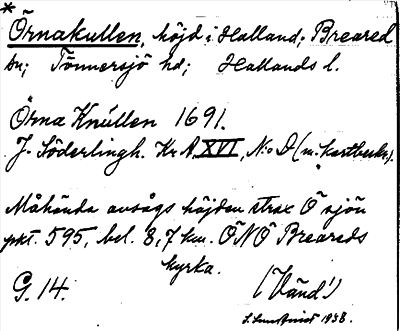 *
Örnakullen, höjd i Halland; Breared
sn; Tönnersjö hd; Hallands l.
Örna Knúllen 1691.
J. Söderlingh. Kr. A. XVI, N:o D (m. kartbeskr.).
Måhända avsågs höjden strax Ö sjön
pkt. 595, bel. 8,7 km. ÖNÖ Breareds
kyrka.
G. 14. (Vänd!)
1938.